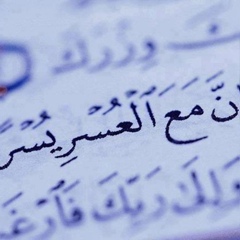 وِزْرَكَ
نَّ مَعَ ٱلْعُسْرِ يُسْرًا
وَإِلَىٰ رَبِّكَ فَٱرْغَ